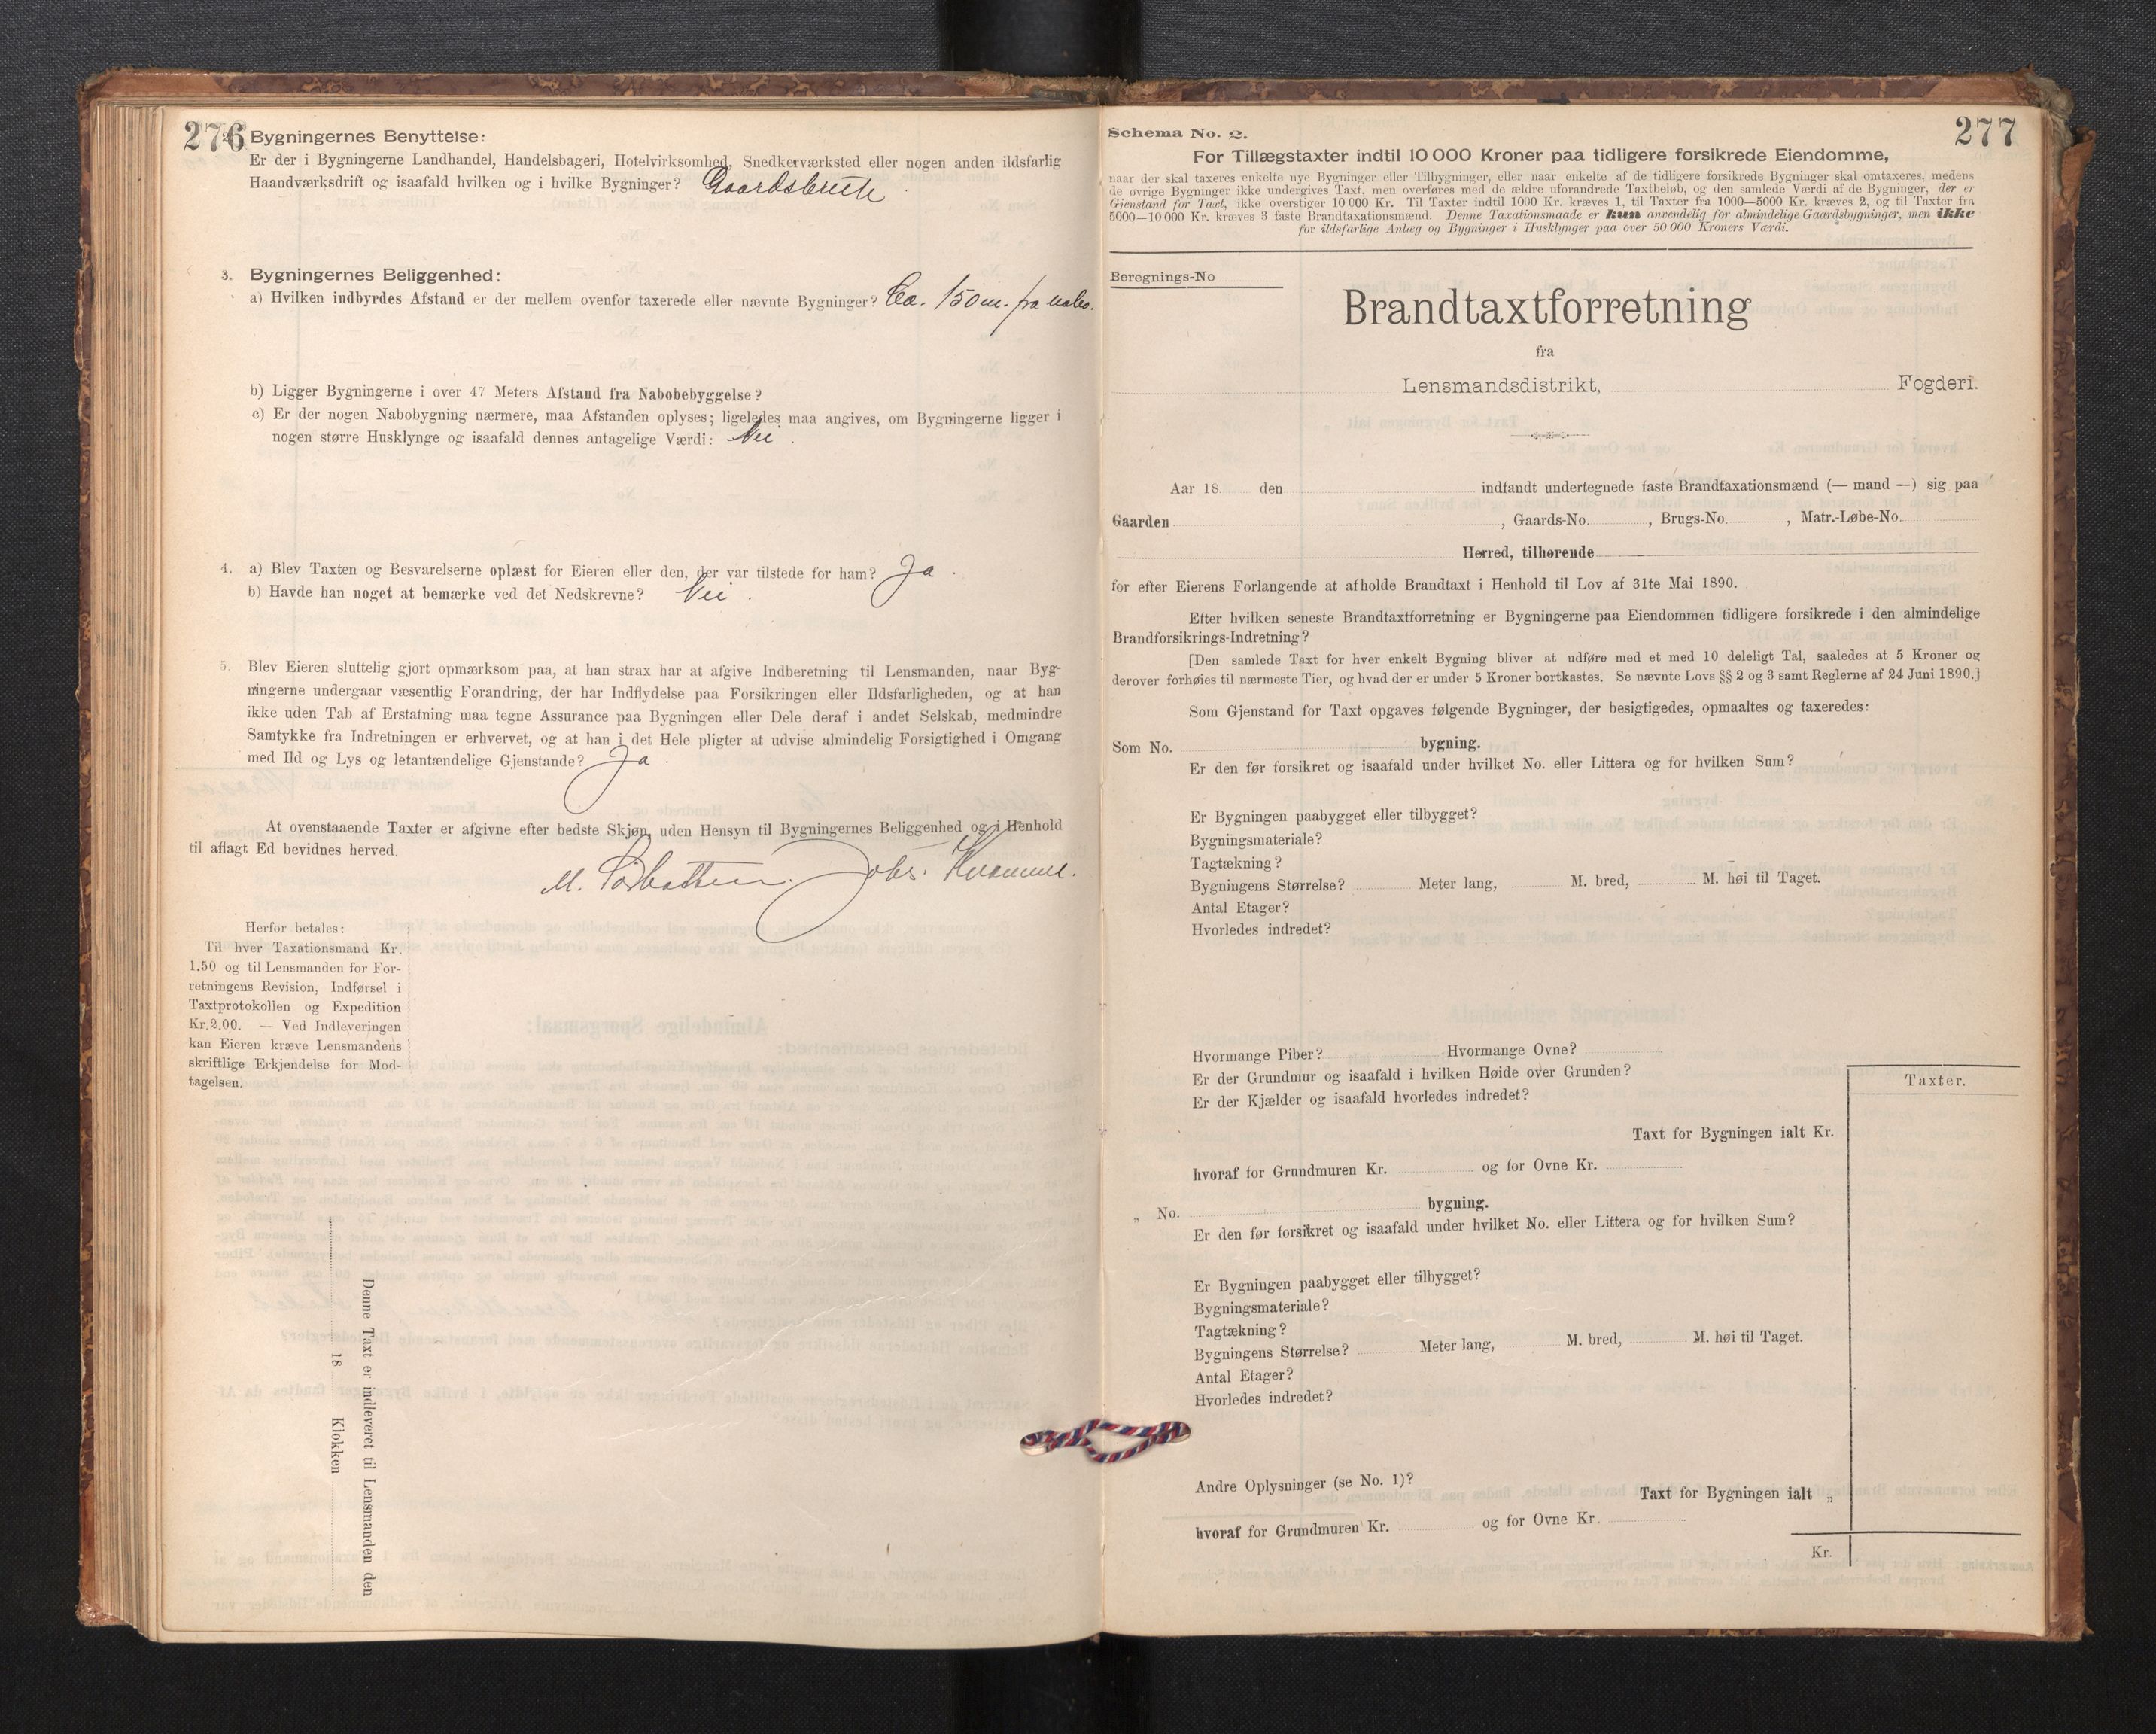 276
Bygningernes Benyttelse:
Er der i Bygningerne Landhandel, Handelsbageri, Hotelvirksomhed, Snedkerværksted eller nogen anden ildsfarlig
Haandværksdrift og isaafald hvilken og i hvilke Bygninger? Gaardsbruk
3. Bygningernes Beliggenhed:
a) Hvilken indbyrdes Afstand er der mellem ovenfor taxerede eller nævnte Bygninger? Ca. 150 m. fra
b) Ligger Bygningerne i over 47 Meters Afstand fra Nabobebyggelse?
c) Er der nogen Nabobygning nærmere, maa Afstanden oplyses; ligeledes maa angives, om Bygningerne ligger i
nogen større Husklynge og isaafald dennes antagelige Værdi: Nei.
4. a) Blev Taxten og Besvarelserne oplæst for Eieren eller den, der var tilstede for ham? Ja.
b) Havde han noget at bemærke ved det Nedskrevne? Nei.
5. Blev Eieren sluttelig gjort opmærksom paa, at han strax har at afgive Indberetning til Lensmanden, naar Byg-
ningerne undergaar væsentlig Forandring, der har Indflydelse paa Forsikringen eller Ildsfarligheden, og at han
ikke uden Tab af Erstatning maa tegne Assurance paa Bygningen eller Dele deraf i andet Selskab, medmindre
Samtykke fra Indretningen er erhvervet, og at han i det Hele pligter at udvise almindelig Forsigtighed i Omgang
med Ild og Lys og letantændelige Gjenstande? Ja.
At ovenstaaende Taxter er afgivne efter bedste Skjøn, uden Hensyn til Bygningernes Beliggenhed og i Henhold
til aflagt Ed bevidnes herved.
M. Sørbotten. Johs. Kvamme.
Herfor betales:
Til hver Taxationsmand Kr.
1.50 og til Lensmanden for For-
retningens Revision, Indførsel i
Taxtprotokollen og Expedition
Kr. 2.00. — Ved Indleveringen
kan Eieren kræve Lensmandens
skriftlige Erkjendelse for Mod-
tagelsen.
Denne Taxt er indleveret til Lensmanden den
18 Klokken
277
Schema No. 2.
For Tillægstaxter indtil 10 000 Kroner paa tidligere forsikrede Eiendomme,
naar der skal taxeres enkelte nye Bygninger eller Tilbygninger, eller naar enkelte af de tidligere forsikrede Bygninger skal omtaxeres, medens
de øvrige Bygninger ikke undergives Taxt, men overføres med de ældre uforandrede Taxtbeløb, og den samlede Værdi af de Bygninger, der er
Gjenstand for Taxt, ikke overstiger 10 000 Kr. Til Taxter indtil 1000 Kr. kræves 1, til Taxter fra 1000—5000 Kr. kræves 2, og til Taxter fra
5000—10 000 Kr. kræves 3 faste Brandtaxationsmænd. Denne Taxationsmaade er kun anvendelig for almindelige Gaardsbygninger, men ikke
for ildsfarlige Anlæg og Bygninger i Husklynger paa over 50 000 Kroners Værdi.
Beregnings-No
Brandtaxtforretning
fra
Lensmandsdistrikt, Fogderi.
Aar 18 den indfandt undertegnede faste Brandtaxationsmænd (— mand —) sig paa
Gaarden , Gaards-No. , Brugs-No. , Matr.-Løbe-No.
Herred, tilhørende
for efter Eierens Forlangende at afholde Brandtaxt i Henhold til Lov af 31te Mai 1890.
Efter hvilken seneste Brandtaxtforretning er Bygningerne paa Eiendommen tidligere forsikrede i den almindelige
Brandforsikrings-Indretning?
[Den samlede Taxt for hver enkelt Bygning bliver at udføre med et med 10 deleligt Tal, saaledes at 5 Kroner og
derover forhøies til nærmeste Tier, og hvad der er under 5 Kroner bortkastes. Se nævnte Lovs §§ 2 og 3 samt Reglerne af 24 Juni 1890.]
Som Gjenstand for Taxt opgaves følgende Bygninger, der besigtigedes, opmaaltes og taxeredes:
Som No. bygning.
Er den før forsikret og isaafald under hvilket No. eller Littera og for hvilken Sum?
Er Bygningen paabygget eller tilbygget?
Bygningsmateriale?
Tagtækning?
Bygningens Størrelse? Meter lang, M. bred, M. høi til Taget.
Antal Etager?
Hvorledes indredet?
Hvormange Piber? Hvormange Ovne?
Er der Grundmur og isaafald i hvilken Høide over Grunden?
Er der Kjælder og isaafald hvorledes indredet?
Taxter.
Taxt for Bygningen ialt Kr.
hvoraf for Grundmuren Kr. og for Ovne Kr.
„ No. bygning.
Er den før forsikret og isaafald under hvilket No. eller Littera og for hvilken Sum?
Er Bygningen paabygget eller tilbygget?
Bygningsmateriale?
Tagtækning?
Bygningens Størrelse? Meter lang, M. bred, M. høi til Taget.
Antal Etager?
Hvorledes indredet?
Andre Oplysninger (se No. 1)?
Taxt for Bygningen ialt „
hvoraf for Grundmuren Kr. og for Ovne Kr.
Kr.